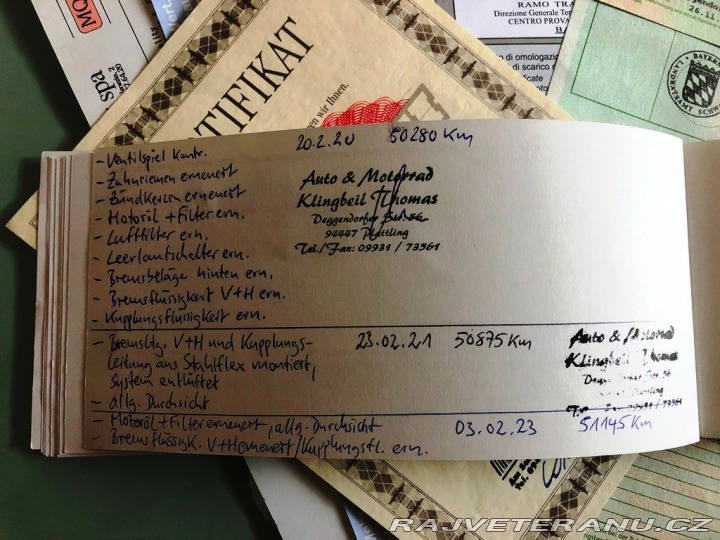 RAMO TRA
Direzione Generale Ter
CENTRO PROVA
omologazio
di scarico
26.11
MO
spa
TIFIKAT
en wir Ihnen.
BAYERN
LANDRATSAMT SCHW
20.2.20 50280 Km
- Ventilspiel Kontr.
- Zahnriemen erneuert
- Zündkerzen erneuert
- Motoröl + Filter ern.
- Luftfilter ern.
- Leerlaufschalter ern.
- Bremsbeläge hinten ern.
- Bremsflüssigkeit V+H ern.
- Kupplungsflüssigkeit ern.
Auto & Motorrad
Klingbeil Thomas
Deggendorfer Str. 56
94447 Plattling
Tel./Fax: 09931 / 73561
- Bremsltg. V+H und Kupplungs-
leitung aus Stahlflex montiert,
System entlüftet
- allg. Durchsicht
23.02.21 50875 Km
Auto & Motorrad
Klingbeil Thomas
Str. 56
Plattling
09931 / 73561
- Motoröl + Filter erneuert, allg. Durchsicht
- Bremsflüssigk. V+H erneuert/Kupplungsfl. ern.
03.02.23 51145 Km
RAJVETERANU.CZ